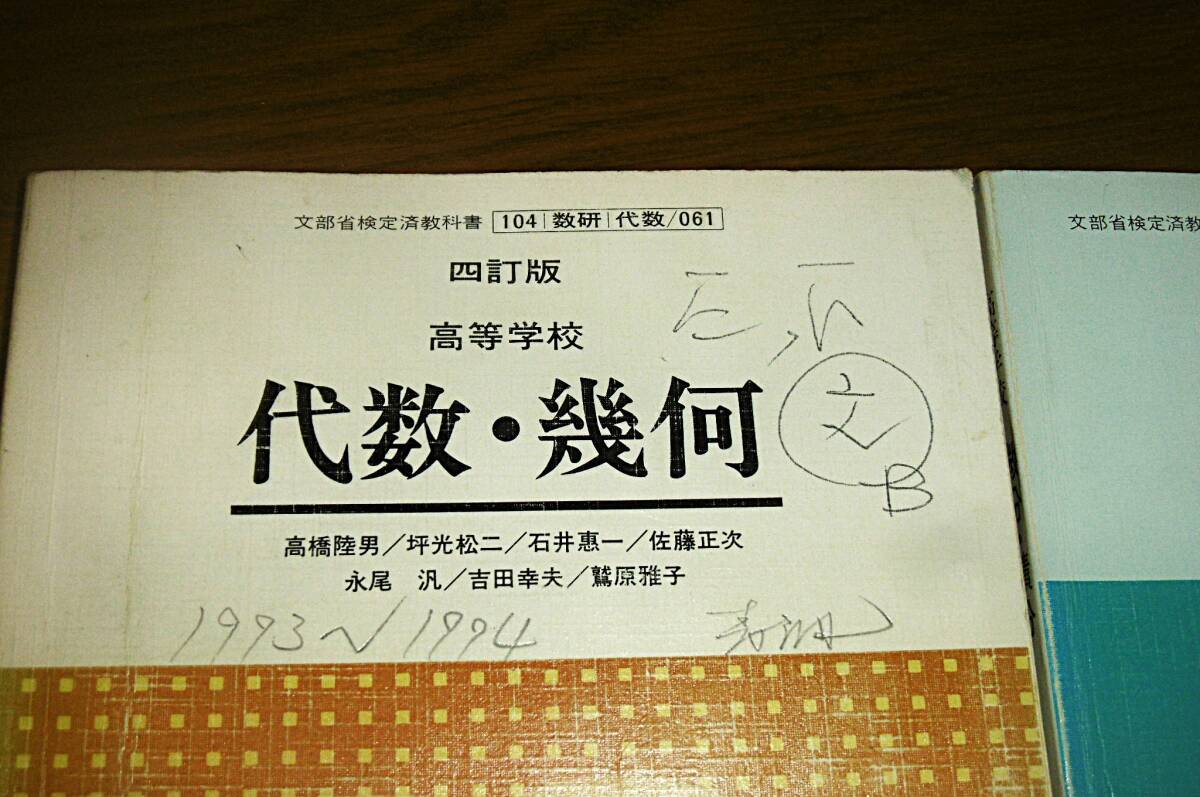 文部省検定済教科書 104 数研 代数/061
四訂版
高等学校
代数・幾何
文
B
高橋陸男/坪光松二/石井惠一/佐藤正次
永尾 汎/吉田幸夫/鷲原雅子
1993~1994
文部省検定済教